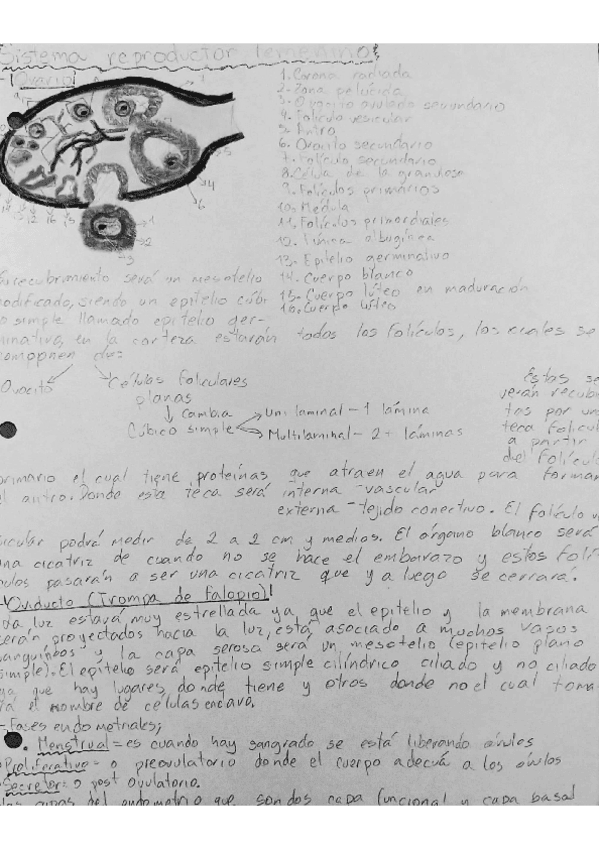 Sistema reproductor femenino
- Ovario
1. Corona radiada
2. Zona pelúcida
3. Ovocito ovulado secundario
4. Folículo vesicular
5. Antro
6. Ovocito secundario
7. Folículo secundario
8. Célula de la granulosa
9. Folículos primarios
10. Médula
11. Folículos primordiales
12. Túnica albugínea
13. Epitelio germinativo
14. Cuerpo blanco
15. Cuerpo lúteo en maduración
16. Cuerpo lúteo
Su recubrimiento será un mesotelio
modificado, siendo un epitelio cúbi
o simple llamado epitelio ger-
minativo, en la corteza estarán todos los folículos, los cuales se
componen de:
Ovocito
Células foliculares
planas
↓ cambia
Cúbico simple
Unilaminal - 1 lámina
Multilaminal - 2+ láminas
Estas se
verán recubier
tas por un
teca folicul
a partir
del folícul
primario el cual tiene proteínas que atraen el agua para formar
el antro. Donde esta teca será interna - vascular
externa - tejido conectivo. El folículo v
sicular podrá medir de 2 a 2 cm y medios. El órgano blanco será
una cicatriz de cuando no se hace el embarazo y estos folí
culos pasarán a ser una cicatriz que ya luego se cerrará.
- Oviducto (Trompa de falopio)
La luz estará muy estrellada ya que el epitelio y la membrana
serán proyectados hacia la luz, está asociado a muchos vasos
sanguíneos y la capa serosa será un mesotelio (epitelio plano
simple). El epitelio será epitelio simple cilíndrico ciliado y no ciliado
ya que hay lugares donde tiene y otros donde no el cual toma
rá el nombre de células en cavo.
- Fases endometriales;
• Menstrual = es cuando hay sangrado se está liberando óvulos
Proliferativa = o preovulatorio donde el cuerpo adecúa a los óvulos
Secretor = o post ovulatorio.
las capas del endometrio que son dos capa funcional y capa basal